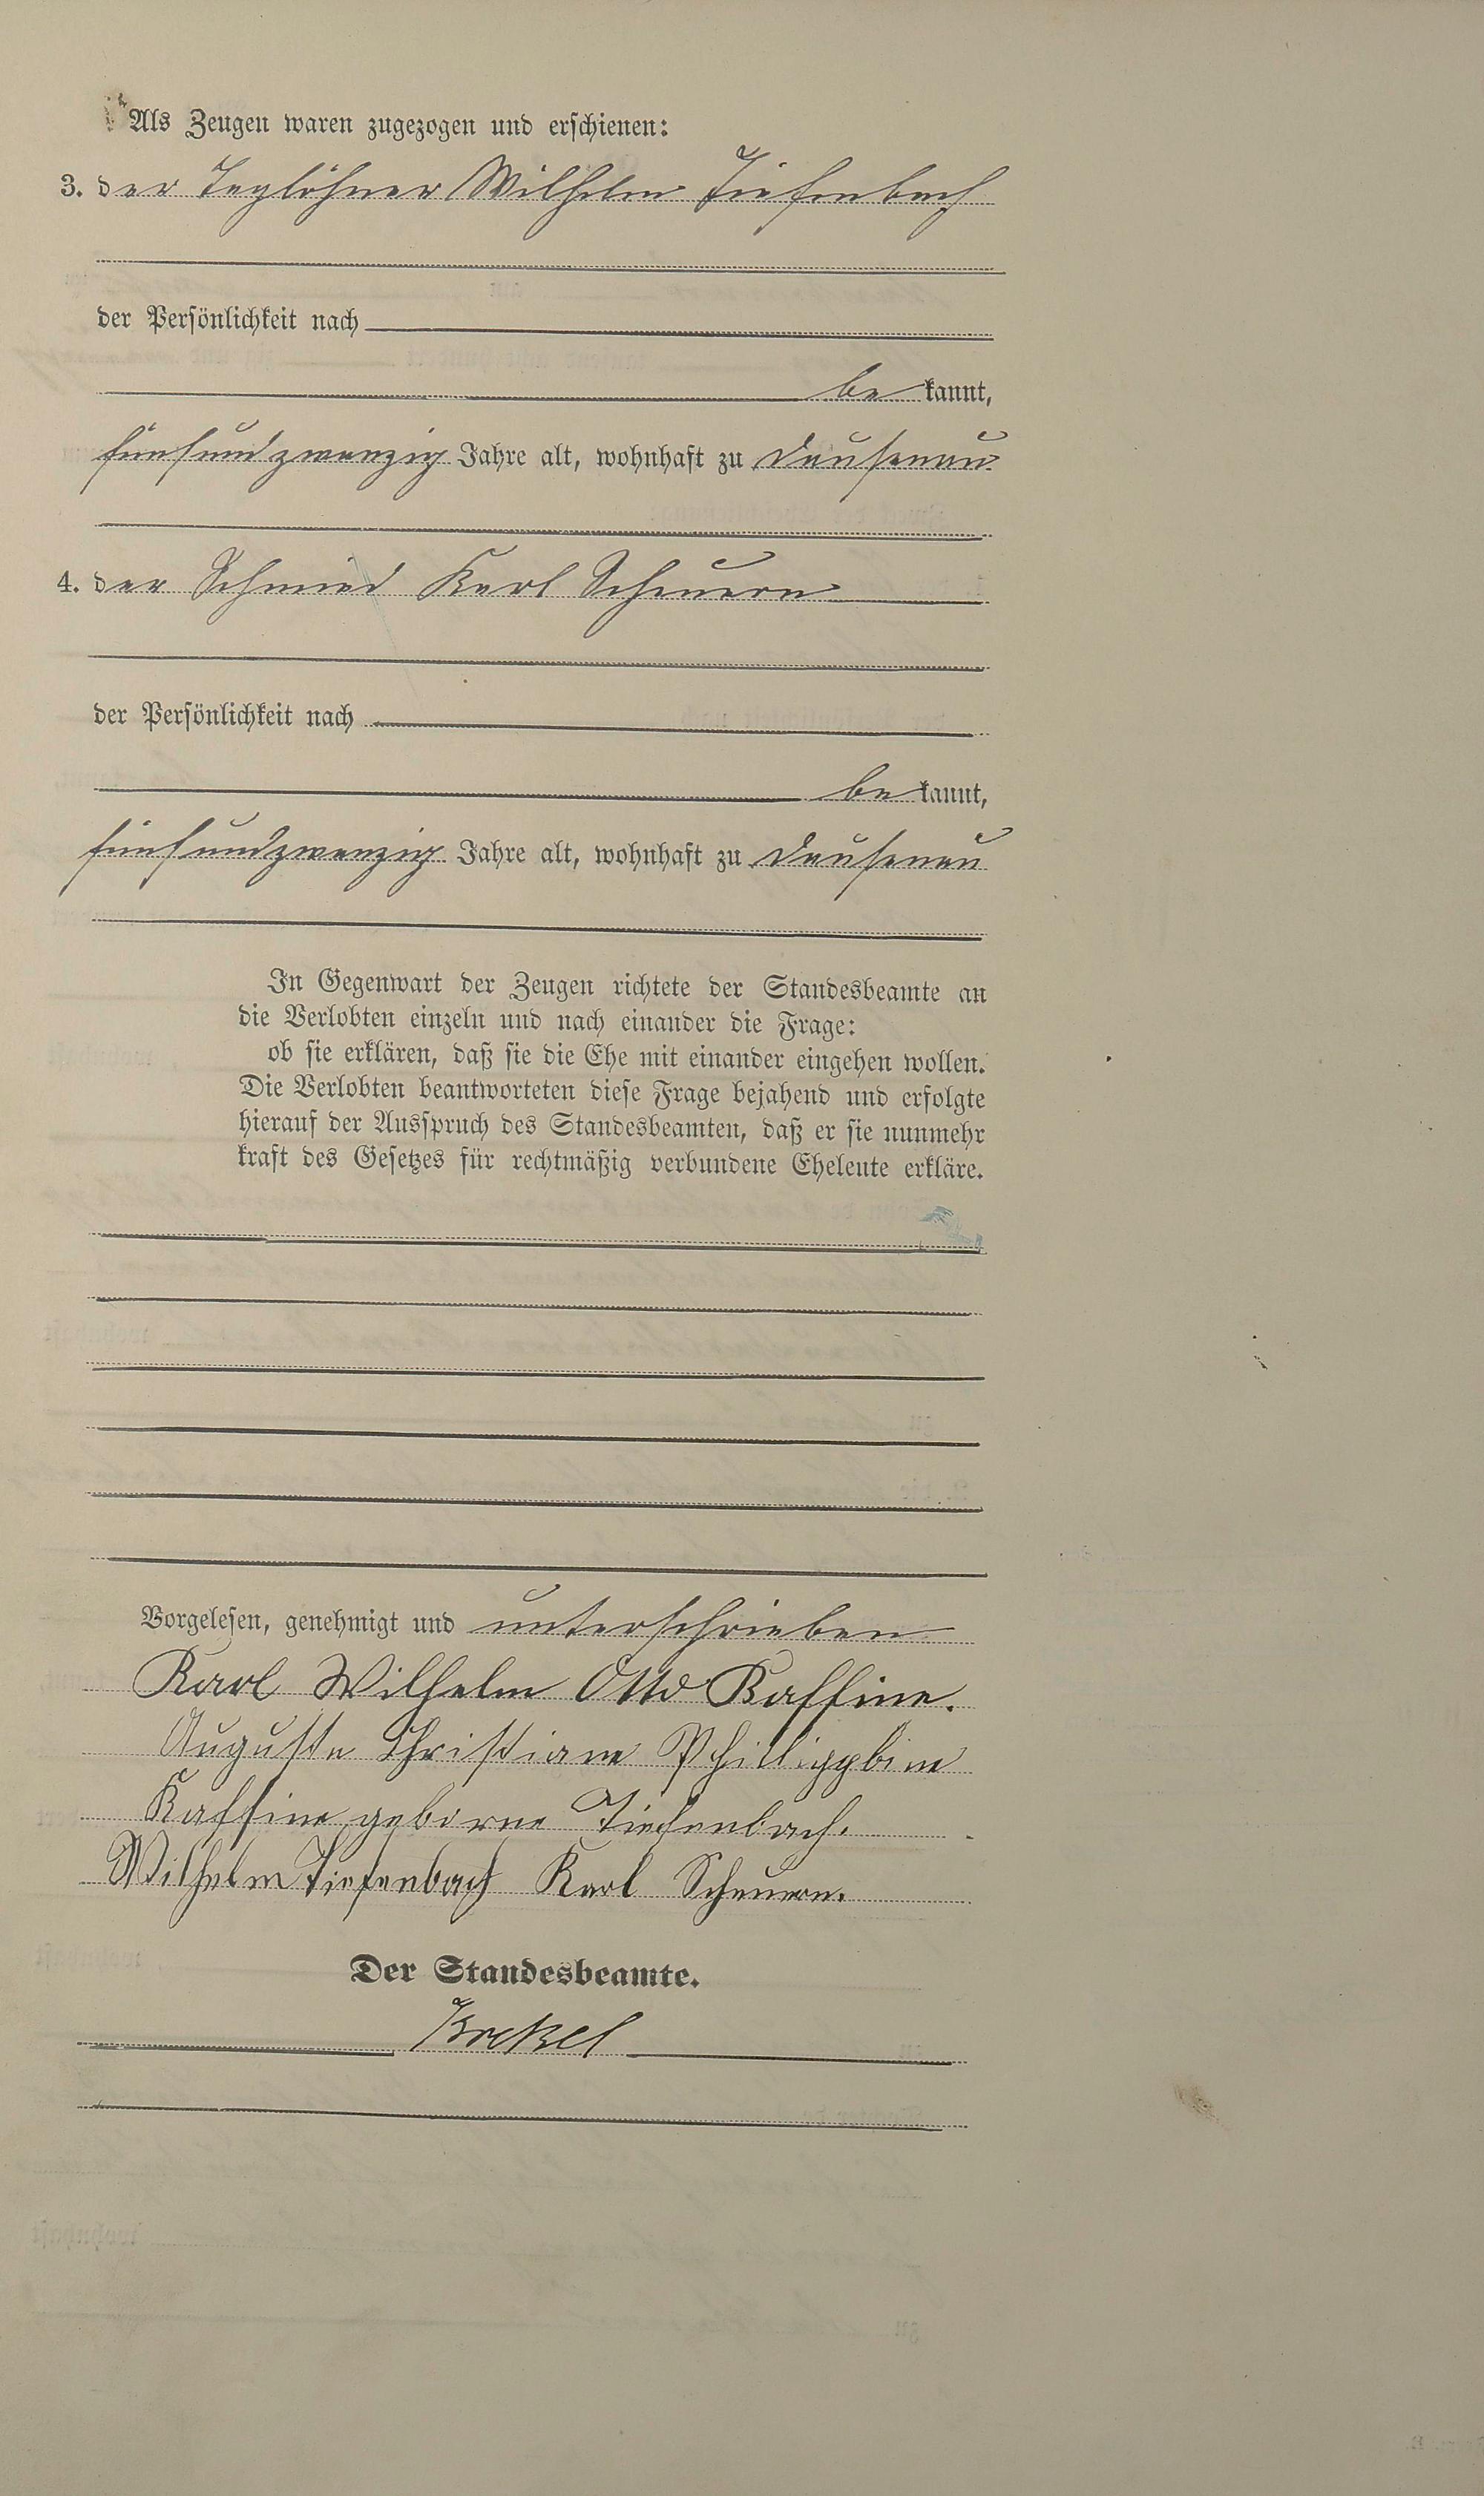 Als Zeugen waren zugezogen und erschienen:
3. der Taglöhner Wilhelm Tiefenbach
der Persönlichkeit nach
be kannt,
fünfundzwanzig Jahre alt, wohnhaft zu Dausenau
4. der Schmied Karl Scheuern
der Persönlichkeit nach
be kannt,
fünfundzwanzig Jahre alt, wohnhaft zu Dausenau
In Gegenwart der Zeugen richtete der Standesbeamte an
die Verlobten einzeln und nach einander die Frage:
ob sie erklären, daß sie die Ehe mit einander eingehen wollen.
Die Verlobten beantworteten diese Frage bejahend und erfolgte
hierauf der Ausspruch des Standesbeamten, daß er sie nunmehr
kraft des Gesetzes für rechtmäßig verbundene Eheleute erkläre.
Vorgelesen, genehmigt und unterschrieben
Karl Wilhelm Otto Kaffine.
Auguste Christiane Phillippbine
Kaffine geborne Tiefenbach.
Wilhelm Tiefenbach Karl Scheuern.
Der Standesbeamte.